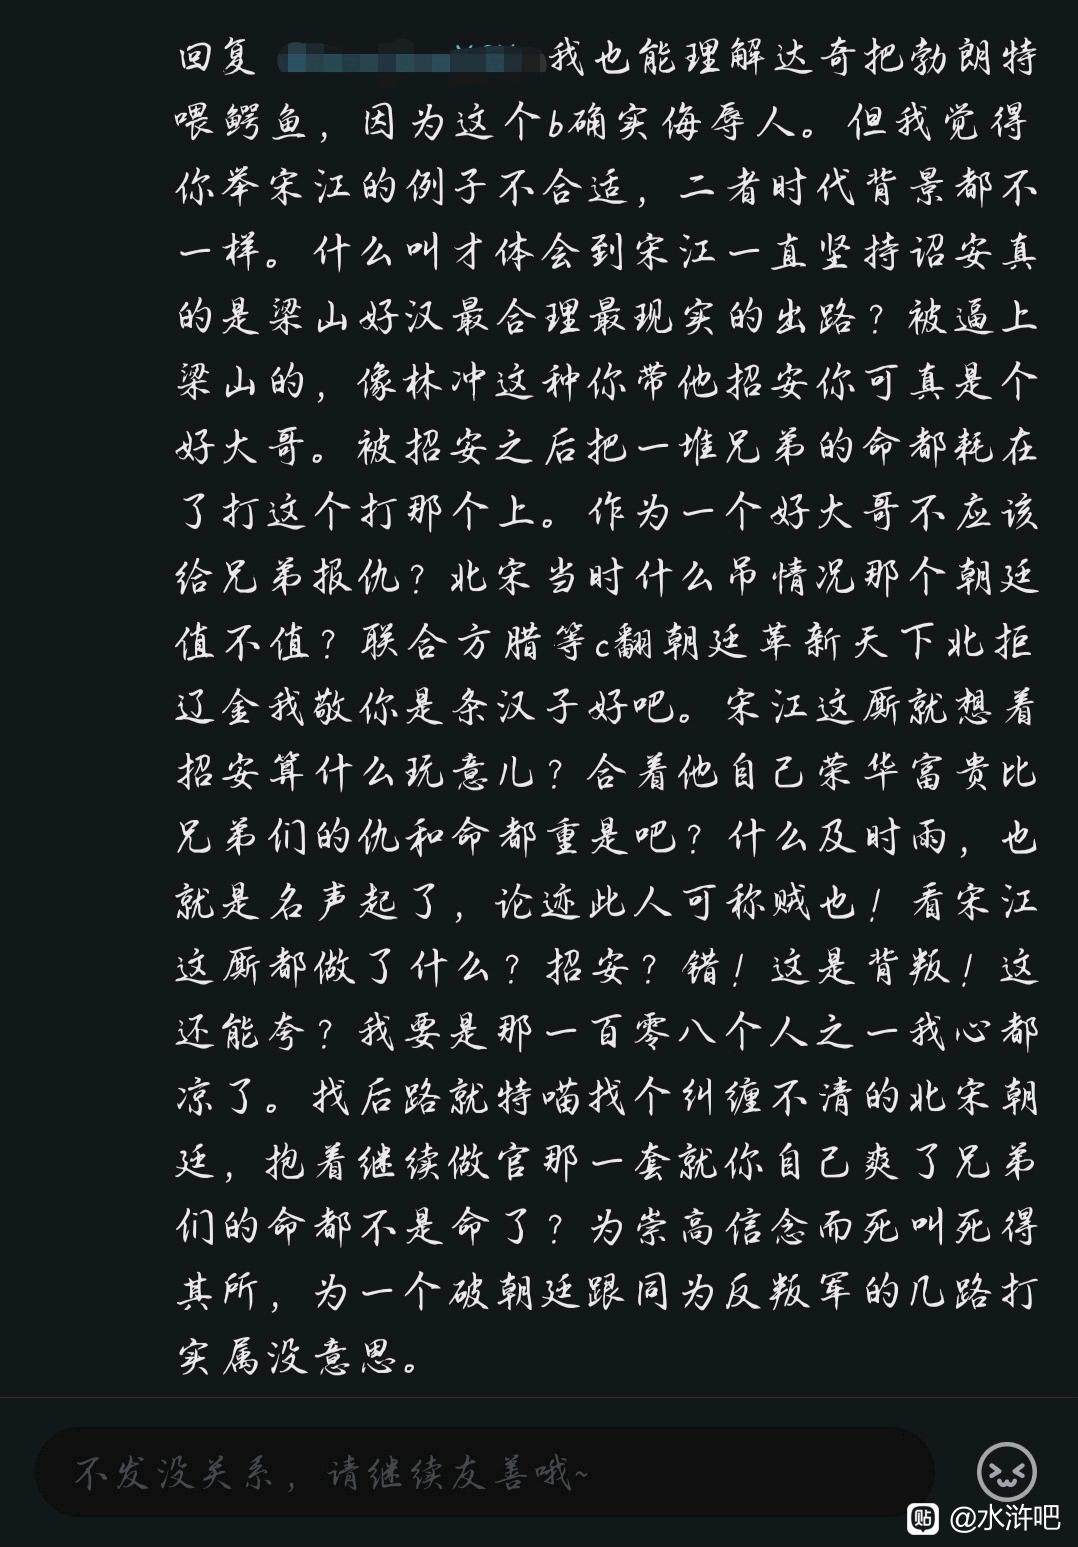 回复 我也能理解达奇把勃朗特
喂鳄鱼，因为这个b确实侮辱人。但我觉得
你举宋江的例子不合适，二者时代背景都不
一样。什么叫才体会到宋江一直坚持诏安真
的是梁山好汉最合理最现实的出路？被逼上
梁山的，像林冲这种你带他招安你可真是个
好大哥。被招安之后把一堆兄弟的命都耗在
了打这个打那个上。作为一个好大哥不应该
给兄弟报仇？北宋当时什么吊情况那个朝廷
值不值？联合方腊等c翻朝廷革新天下北拒
辽金我敬你是条汉子好吧。宋江这厮就想着
招安算什么玩意儿？合着他自己荣华富贵比
兄弟们的仇和命都重是吧？什么及时雨，也
就是名声起了，论迹此人可称贼也！看宋江
这厮都做了什么？招安？错！这是背叛！这
还能夸？我要是那一百零八个人之一我心都
凉了。找后路就特喵找个纠缠不清的北宋朝
廷，抱着继续做官那一套就你自己爽了兄弟
们的命都不是命了？为崇高信念而死叫死得
其所，为一个破朝廷跟同为反叛军的几路打
实属没意思。
不发没关系，请继续友善哦~
贴 @水浒吧